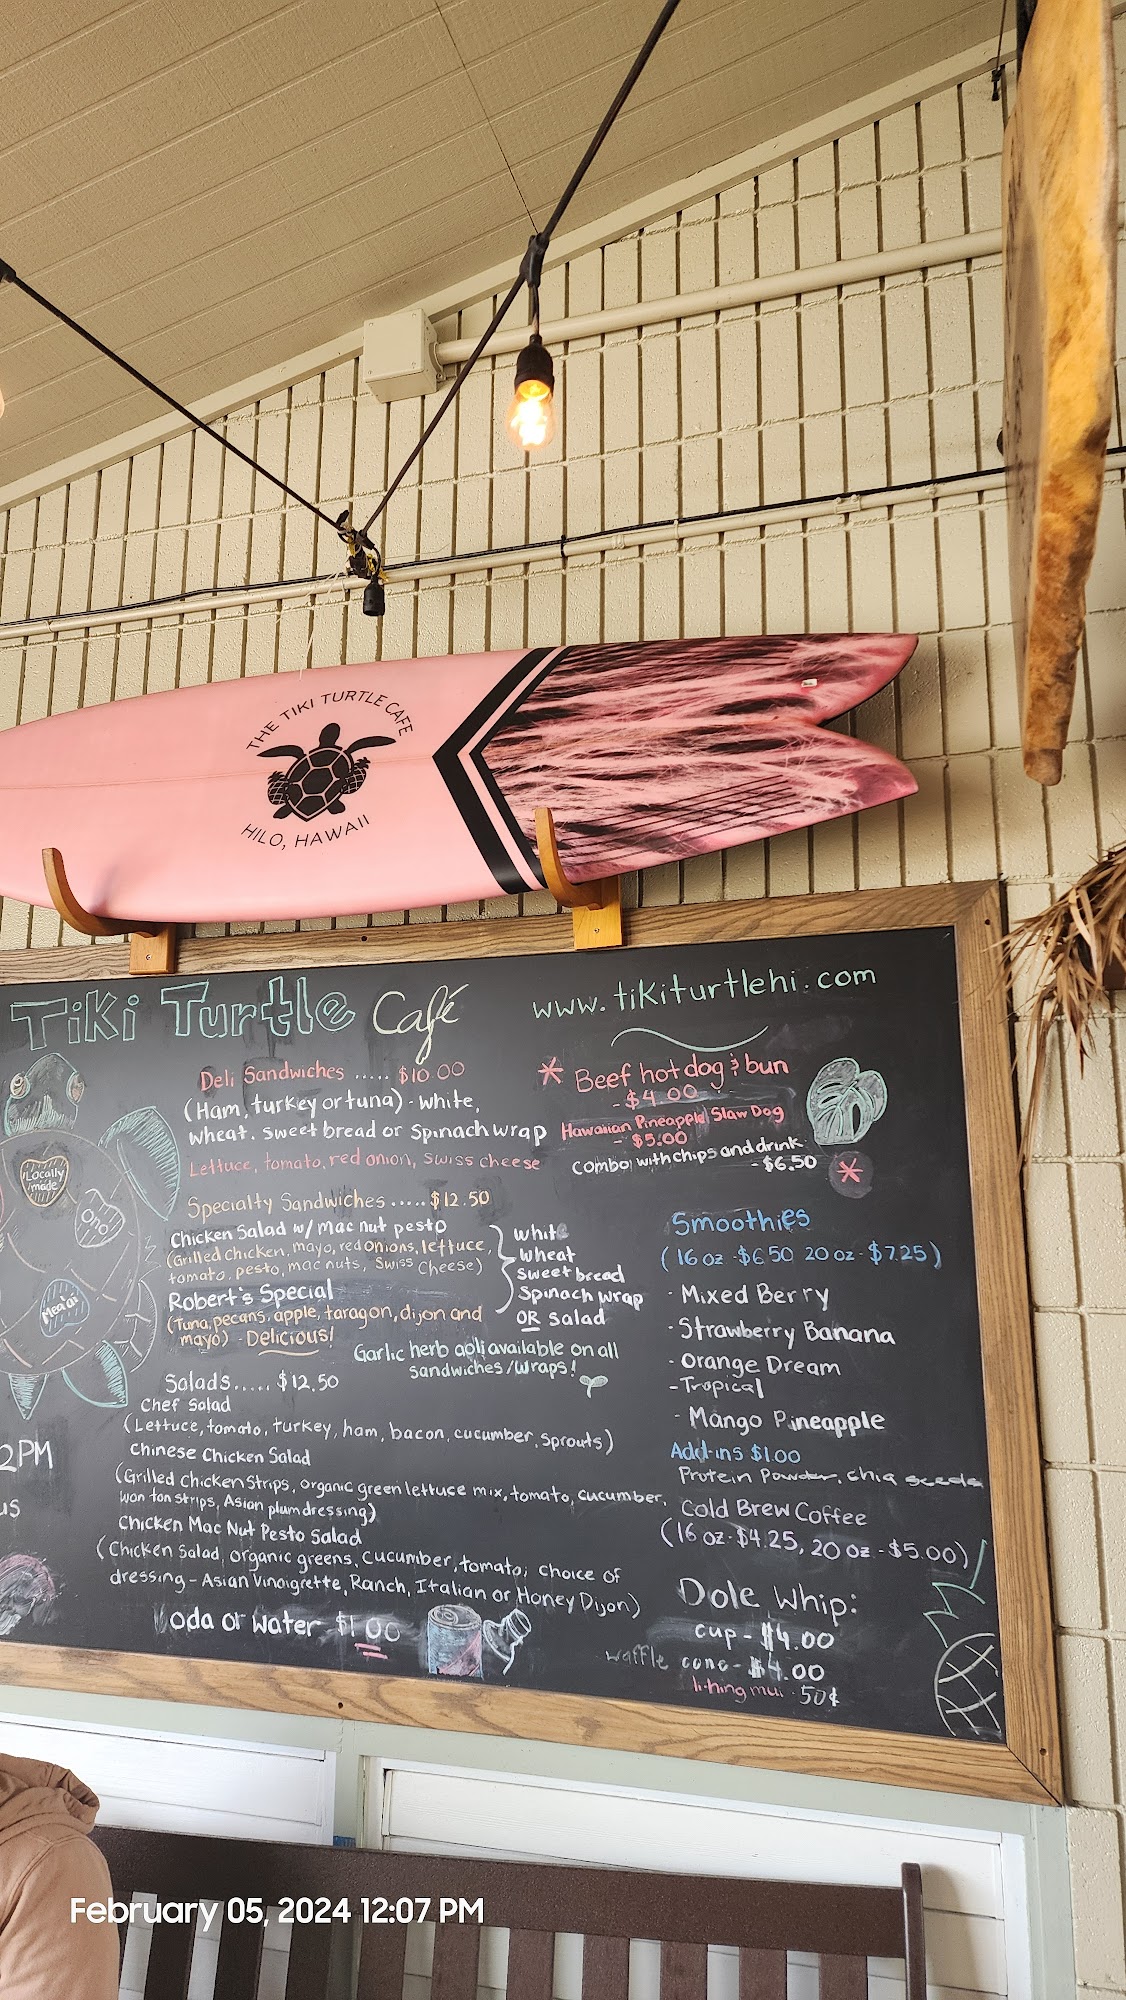 THE TIKI TURTLE CAFE
HILO, HAWAII
Tiki Turtle Café
www.tikiturtlehi.com
Locally made
Ono
Mea'ai
2PM
us
Deli Sandwiches ..... $10.00
(Ham, turkey or tuna) - white,
wheat. sweet bread or Spinach wrap
Lettuce, tomato, red onion, swiss cheese
Specialty Sandwiches ..... $12.50
Chicken Salad w/ mac nut pesto
(Grilled chicken, mayo, red onions, lettuce,
tomato, pesto, mac nuts, Swiss Cheese)
Robert's Special
(Tuna, pecans, apple, taragon, dijon and
mayo) - Delicious!
white
wheat
sweet bread
Spinach wrap
OR salad
Garlic herb aoli available on all
sandwiches/wraps!
Salads..... $12.50
Chef Salad
(Lettuce, tomato, turkey, ham, bacon, cucumber, sprouts)
Chinese Chicken Salad
(Grilled Chicken Strips, organic green lettuce mix, tomato, cucumber,
won ton strips, Asian plum dressing)
Chicken Mac Nut Pesto Salad
(Chicken Salad, organic greens, cucumber, tomato; choice of
dressing - Asian Vinaigrette, Ranch, Italian or Honey Dijon)
oda or water $1.00
* Beef hot dog & bun
- $4.00
Hawaiian Pineapple Slaw Dog
- $5.00
Combo, with chips and drink
- $6.50 *
Smoothies
(16 oz - $6.50 20 oz - $7.25)
· Mixed Berry
· Strawberry Banana
· Orange Dream
- Tropical
· Mango Pineapple
Add-ins $1.00
Protein Powder, chia seeds
Cold Brew Coffee
(16 oz - $4.25, 20 oz - $5.00)
Dole Whip:
cup - $4.00
waffle cone - $4.00
li-hing mui - 50¢
February 05, 2024 12:07 PM